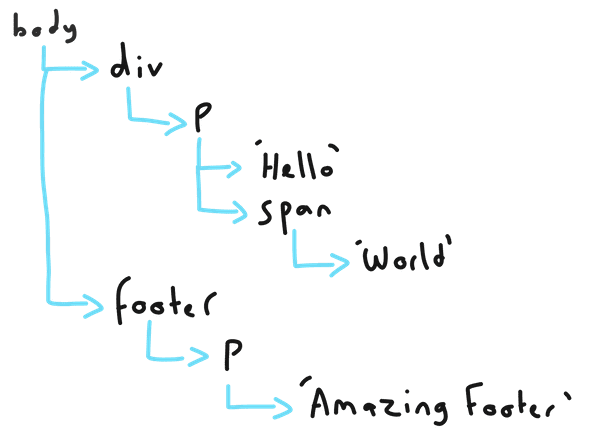 body
div
p
'Hello'
span
'World'
footer
p
'Amazing Footer'